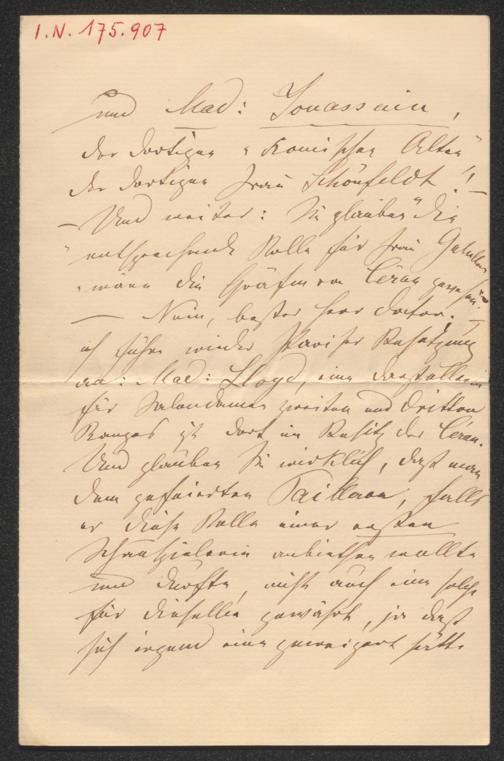 I.N. 175.907
und Mad: Jouassain,
der dortigen "komischen Alten"
der dortigen Frau Schönfeldt! –
– Und weiter: Sie glauben "die
entsprechende Rolle für Frau Gabillon
"wäre die Gräfin von Céran gewesen."
– Nein, bester Herr Doctor! –
ich führe wieder Pariser Besetzung
an: Mad: Lloyd, eine Darstellerin
für Salondamen zweiten und dritten
Ranges ist dort im Besitz der Céran.
Und glauben Sie wirklich, daß man
dem gefeierten Pailleron, falls
er diese Rolle einer ersten
Schauspielerin anbiethen wollte
und durfte, nicht auch eine solche
für dieselbe gewährt, ja daß
sich irgend eine geweigert hätte